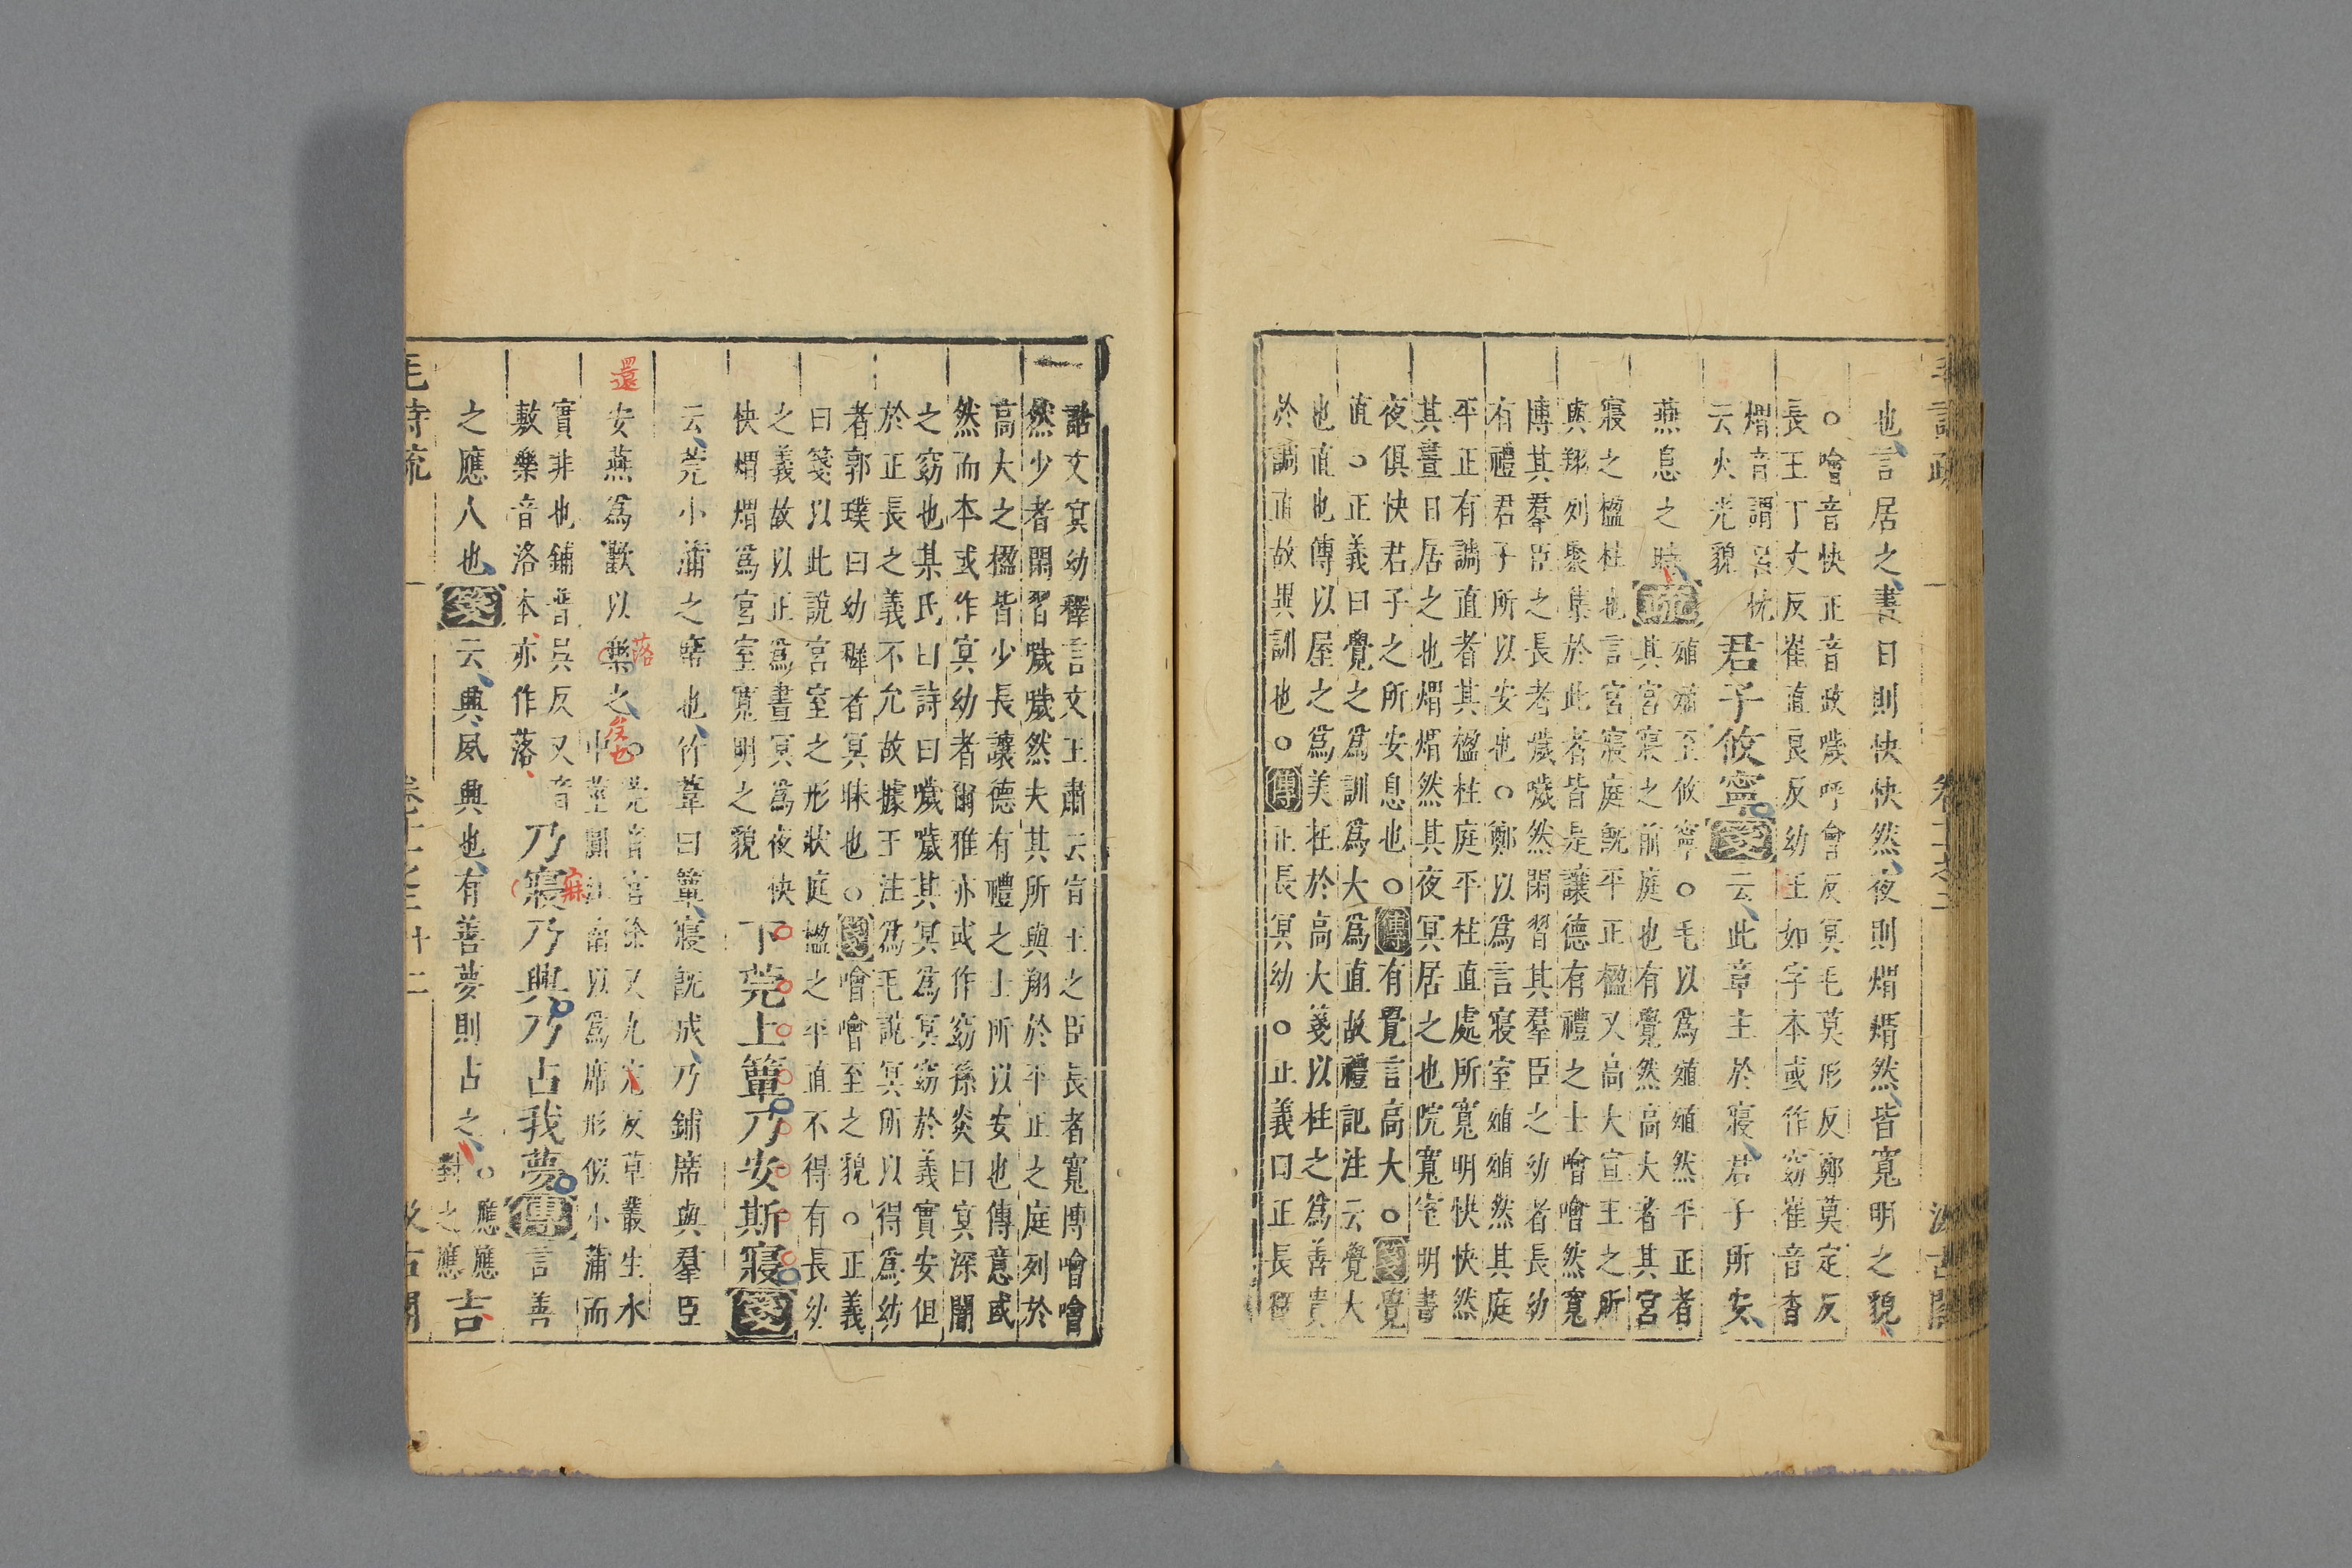 也言居之晝日則快快然夜則煟煟然皆寬明之貌
○噲音快正音政噦呼會反冥毛莫形反鄭莫定反
長王丁丈反崔直良反幼王如字本或作窈崔音杳
煟音謂宮忱
云火光貌
君子攸寧箋云此章主於寢君子所安
燕息之時疏
殖殖至攸寧○毛以爲殖殖然平正者
其宮寢之前庭也有覺然高大者其宮
寢之楹柱也言宮寢庭既平正楹又高大宣王之所
與翔列聚集於此者皆是讓德有禮之士噲噲然寬
博其羣臣之長者噦噦然閑習其羣臣之幼者長幼
有禮君子所以安也○鄭以爲言寢室殖殖然其庭
平正有調直者其楹柱庭平柱直處所寬明快快然
其晝日居之也煟煟然其夜冥居之也院寬室明晝
夜俱快君子之所安息也○傳有覺言高大○箋覺
直○正義曰覺之爲訓爲大爲直故禮記注云覺大
也直也傳以屋之爲美在於高大箋以柱之爲善貴
於調直故異訓也○傳正長冥幼○正義曰正長釋
詁文冥幼釋言文王肅云宣王之臣長者寬博噲噲
然少者閑習噦噦然夫其所與翔於平正之庭列於
高大之楹皆少長讓德有禮之士所以安也傳意或
然而本或作冥幼者爾雅亦或作窈孫炎曰冥深闇
之窈也某氏曰詩曰噦噦其冥爲冥窈於義實安但
於正長之義不允故據王注爲毛說冥所以得爲幼
者郭璞曰幼稺者冥昧也○箋噲噲至之貌○正義
曰箋以此說宮室之形狀庭楹之平直不得有長幼
之義故以正爲晝冥爲夜快
快煟煟爲宮室寬明之貌
下莞上簟乃安斯寢箋
云莞小蒲之席也竹葦曰簟寢既成乃鋪席與羣臣
還
安燕爲歡以樂之
落
莞音官徐又九完反草叢生水
中莖圓江南以爲席形似小蒲而
實非也鋪普吳反又音
敷樂音洛本亦作落
乃寢乃興乃占我夢傳言善
寐
之應人也箋云興夙興也有善夢則占之
○應應
對之應
吉